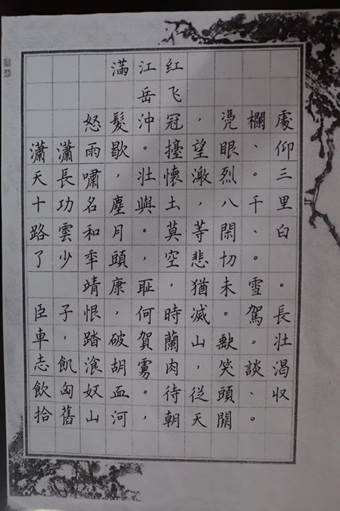 滿江红
岳飞
怒髮沖冠，凴欄處
瀟瀟雨歇。擡望眼、仰
天長嘯，壮懷激烈。三
十功名塵與土，八千里
路雲和月。莫等閑、白
了少年頭，空悲切。
靖康恥，猶未雪。
臣子恨，何時滅。駕長
車，踏破賀蘭山缺。壮
志飢飡胡虜肉，笑談渴
飲匈奴血。待從頭、収
拾舊山河，朝天闕。